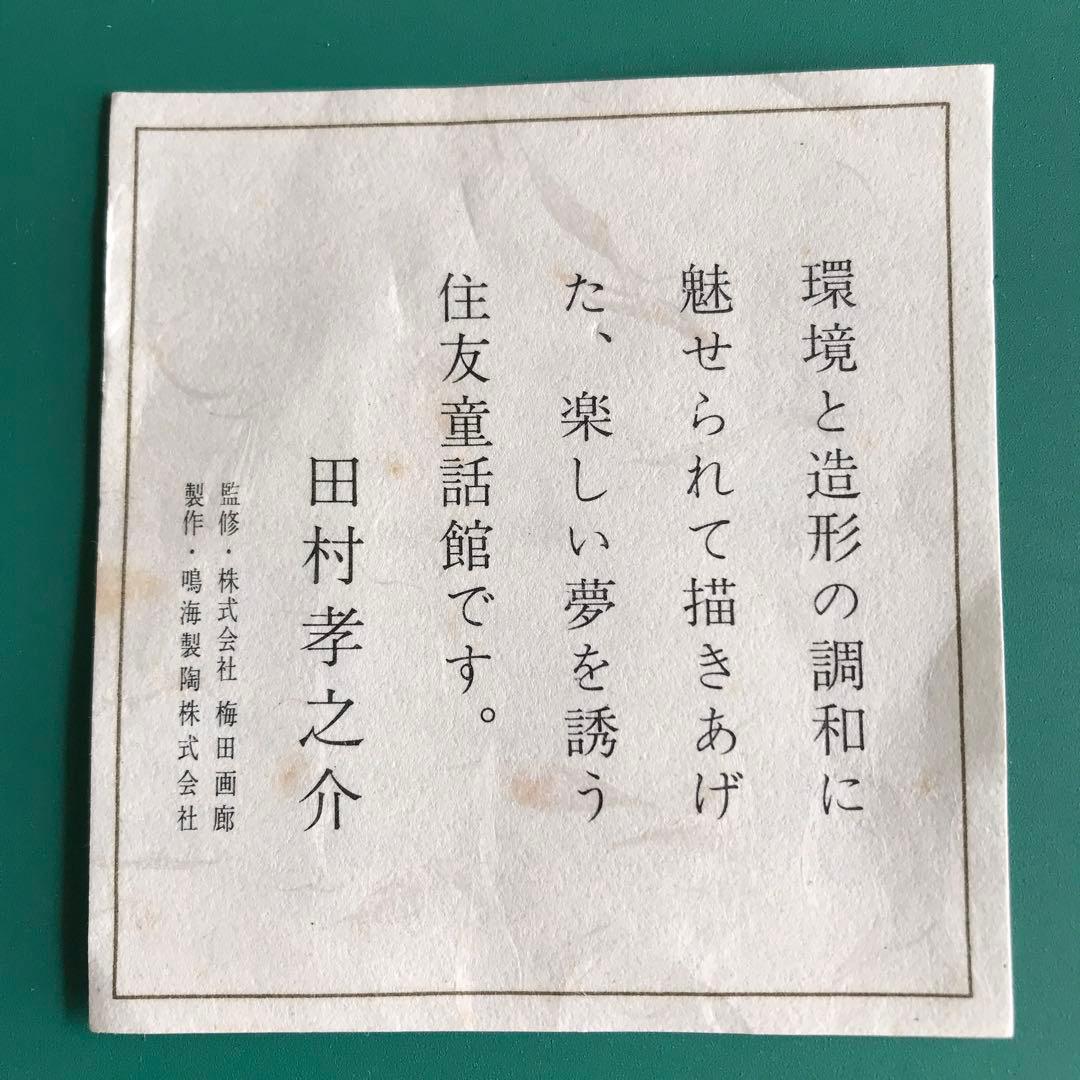 環境と造形の調和に
魅せられて描きあげ
た、楽しい夢を誘う
住友童話館です。
田村孝之介
監修・株式会社 梅田画廊
製作・鳴海製陶株式会社